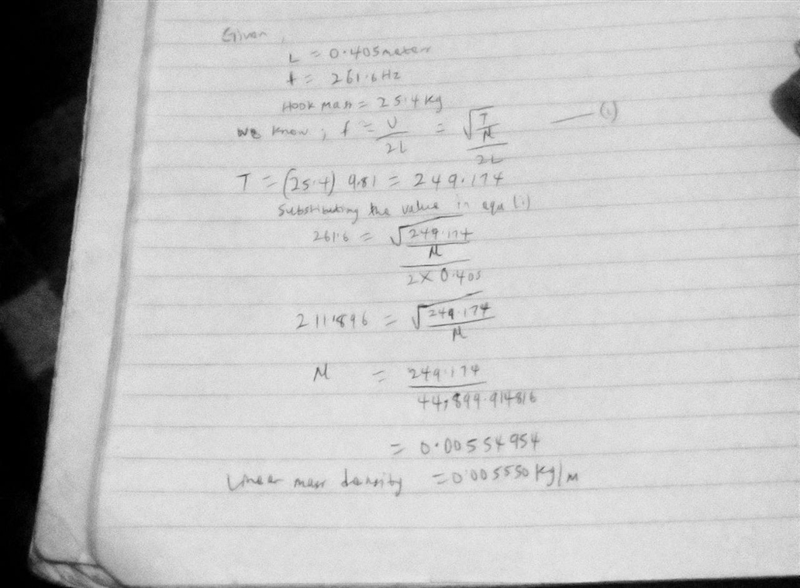 Given,
L = 0.405 meters
f = 261.6 Hz
Hook mass = 25.4 kg
We know, f = V/2L = √(T/M)/2L —— (1)
T = (25.4) 9.81 = 249.174
Substituting the value in equ (1)
261.6 = √(249.174/M)/2×0.405
211.896 = √(249.174/M)
M = 249.174/44,899.914816
= 0.00554954
Linear mass density = 0.005550 kg/m